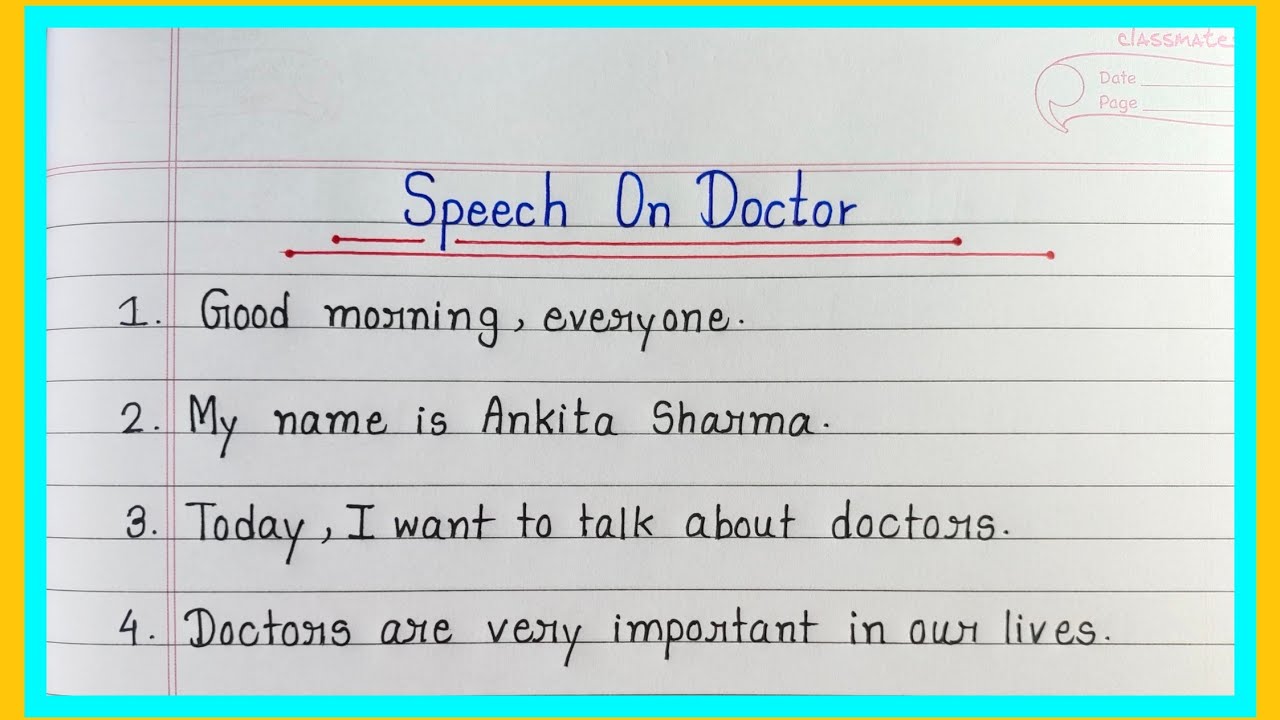 classmate
Date
Page
Speech On Doctor
1. Good morning, everyone.
2. My name is Ankita Sharma.
3. Today, I want to talk about doctors.
4. Doctors are very important in our lives.